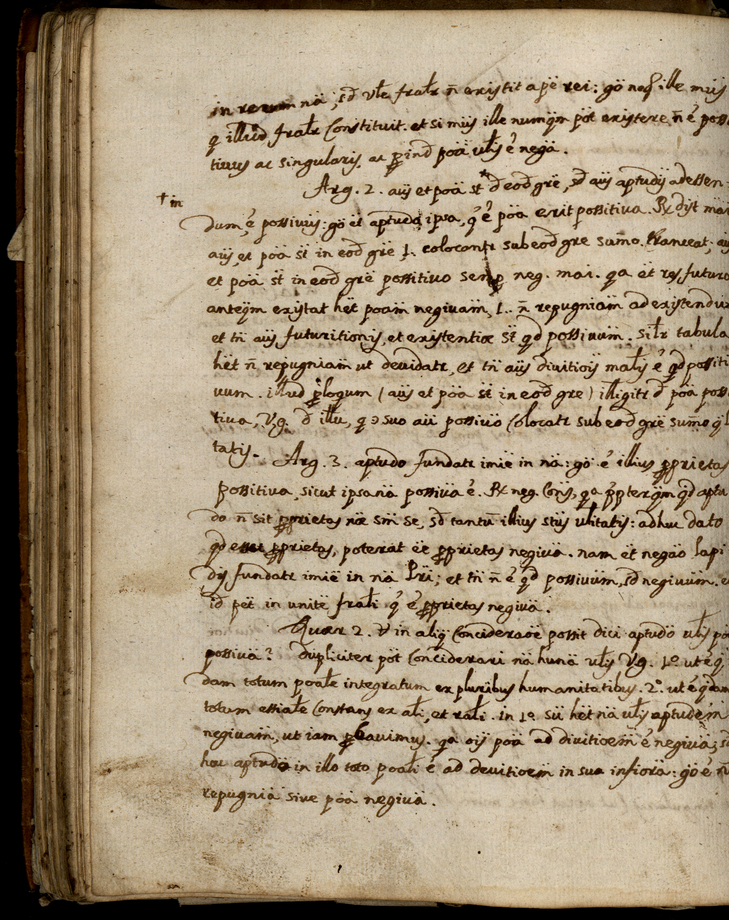 in rerum nã, sd̃ vle fraĺr ñ existit a pẽ rei: gõ neq̃ ille mus
q̃ illud fraĺr Constituit. et si mus ille numqm̃ põt existere ñ ẽ poss
tiuus ac singularis, ac ꝓind põa ulis ẽ nega.
Arg. 2. aũs et põa st̃ d̃ eod̃ grẽ, sd̃ aũs aptudĩs ad essen
† in
dum, ẽ possiuus: gõ ẽt aptudo ipsa, q̃ ẽ põa erit possitiua. Rx dist mai
aũs, et põa st̃ in eod̃ grẽ .I. colocantr sub eod̃ grẽ sumo. tranceat; aũs
et põa st̃ in eod̃ grẽ possitiuo semp neg. mai. qa ẽt res futura
anteqm̃ existat hẽt põam negiuam, .I. ñ repugniam ad existendum
et tñ aũs futuritionis, et existentiæ st̃ qd possiuum. Siĺr tabula
hẽt ñ repugniam ut deuidatr, et tñ aũs diuitiõis malis ẽ qd possiti
uum. illud ꝓlogum (aũs et põa st̃ in eod̃ gre) illigitr d̃ põa possi
tiua, V.g. d̃ illa, q̃ ɔ suo aũ possiuo Colocatr sub eod̃ grẽ sumo q̃l
tatis. Arg. 3. aptudo fundatr imiẽ in nã: gõ ẽ illius ꝓprietas
possitiua, sicut ipsa nã possiua ẽ. Rx neg. Coñs, qa ꝓpterqm̃ qd aptu
do ñ sit ꝓprietas næ sm̃ se, sd̃ tantũ illius stũs ulitatis: adhuc dato
qd esset ꝓprietas, poterat ẽe ꝓprietas negiua. nam ẽt negão lapi
dis fundatr imiẽ in nã Pri; et tñ ñ ẽ qd possiuum, sd̃ negiuum. et
id pẽt in unitẽ fraĺi q̃ ẽ ꝓprietas negiua.
Quær 2. ũ in aliq̃ Considerãoẽ possit dici aptudo ulis põa
possiua? dupliciter põt Conciderari nã hunã ulis V.g. 1º ut ẽ q̃
dam totum poale integratum ex pluribus humanitatibus. 2º ut ẽ q̃dam
totum essiale Constans ex ali, et rali. in 1º sũ hẽt nã ulis aptudẽm
negiuam, ut iam ꝓbauimus. qa ois põa ad diuitioẽm ẽ negiua; sd̃
hæc aptudo in illo toto poali ẽ ad deuitioẽm in sua infiora: gõ ẽ ñ
repugnia siue põa negiua.